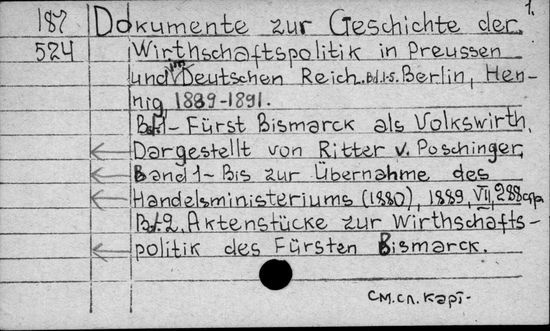 1.
187 Dokumente zur Geschichte der
524 Wirthschaftspolitik in Preussen
und im Deutschen Reich. Bd.1-5. Berlin, Hen-
nig, 1889-1891.
Bd.1 - Fürst Bismarck als Volkswirth.
Dargestellt von Ritter v. Poschinger.
Band 1 - Bis zur Übernahme des
Handelsministeriums (1880), 1889, VII, 288 стр.
Bd.2. Aktenstücke zur Wirthschafts-
politik des Fürsten Bismarck.
см. сл. карт.